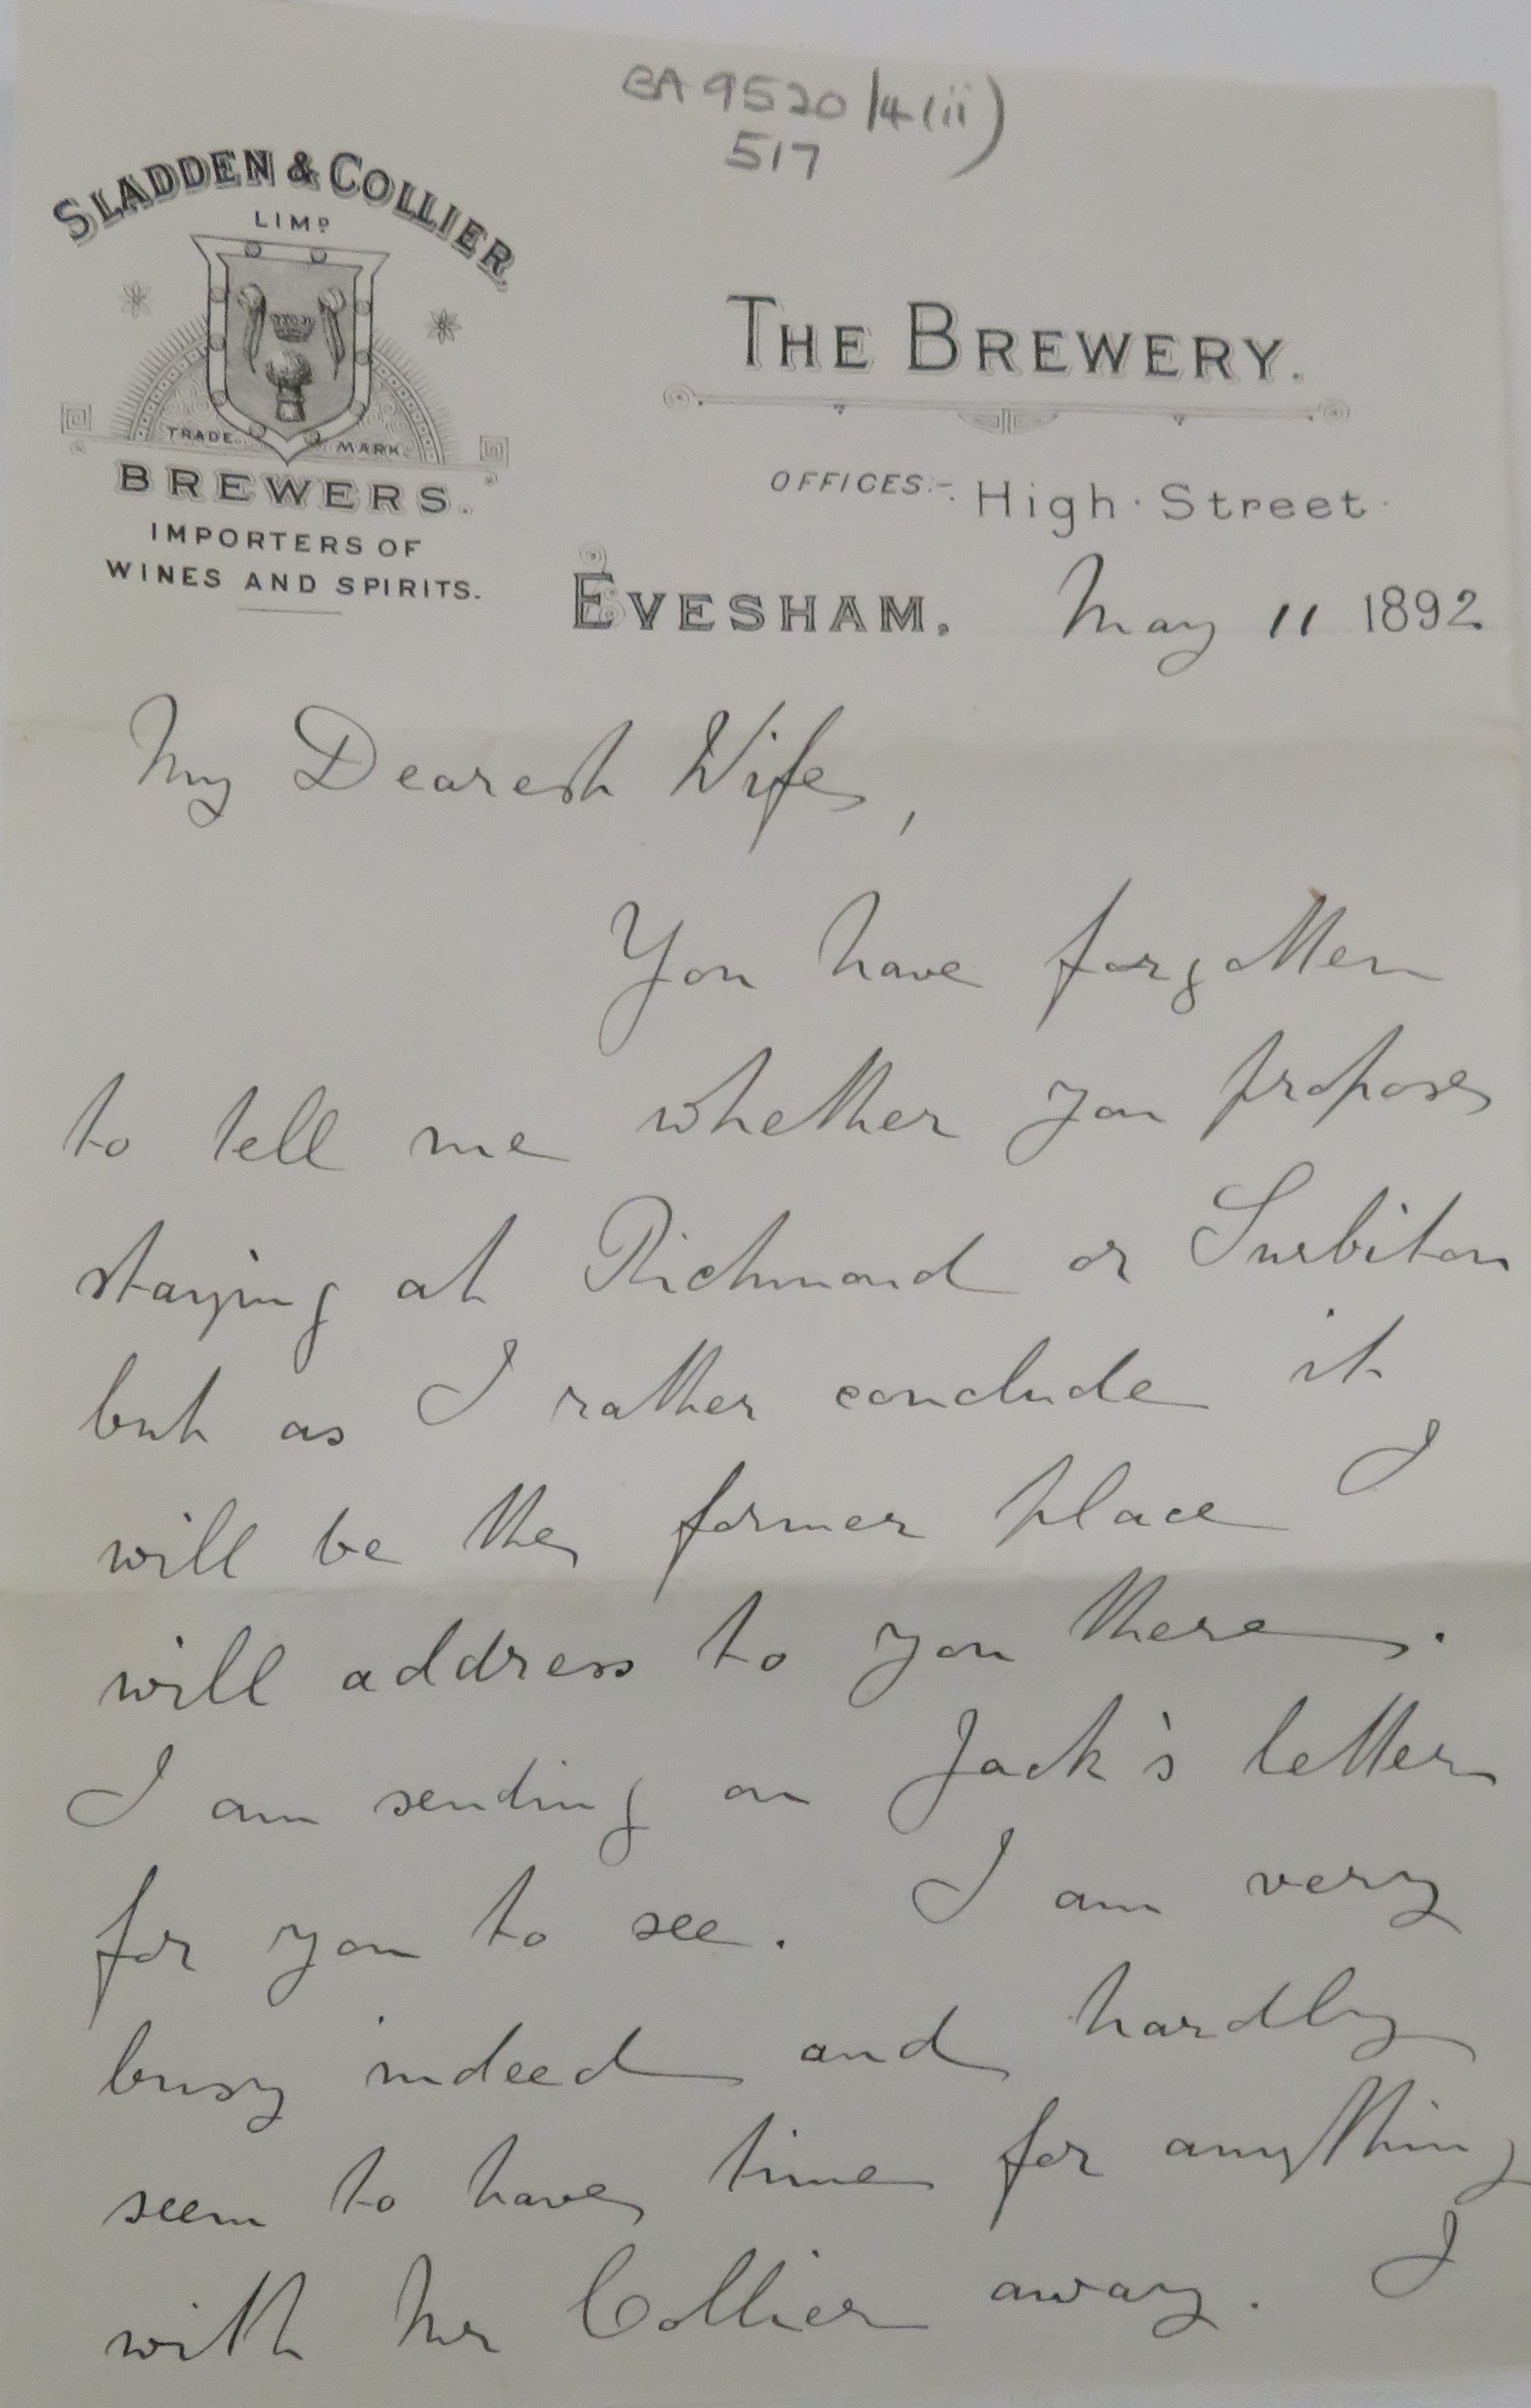 BA 9520/4(ii)
517
SLADDEN & COLLIER
LIMD
TRADE MARK
BREWERS.
IMPORTERS OF
WINES AND SPIRITS.
THE BREWERY.
OFFICES:- High Street
EVESHAM. May 11 1892
My Dearest Wife,
You have forgotten
to tell me whether you propose
staying at Richmond or Surbiton
but as I rather conclude it
will be the former place I
will address to you there.
I am sending on Jack's letter
for you to see. I am very
busy indeed and hardly
seem to have time for anything
with Mr Collier away. I